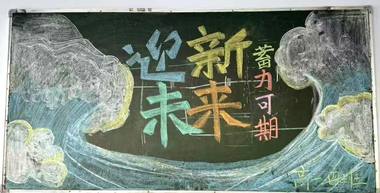 迎新
未来
蓄力可期
高一